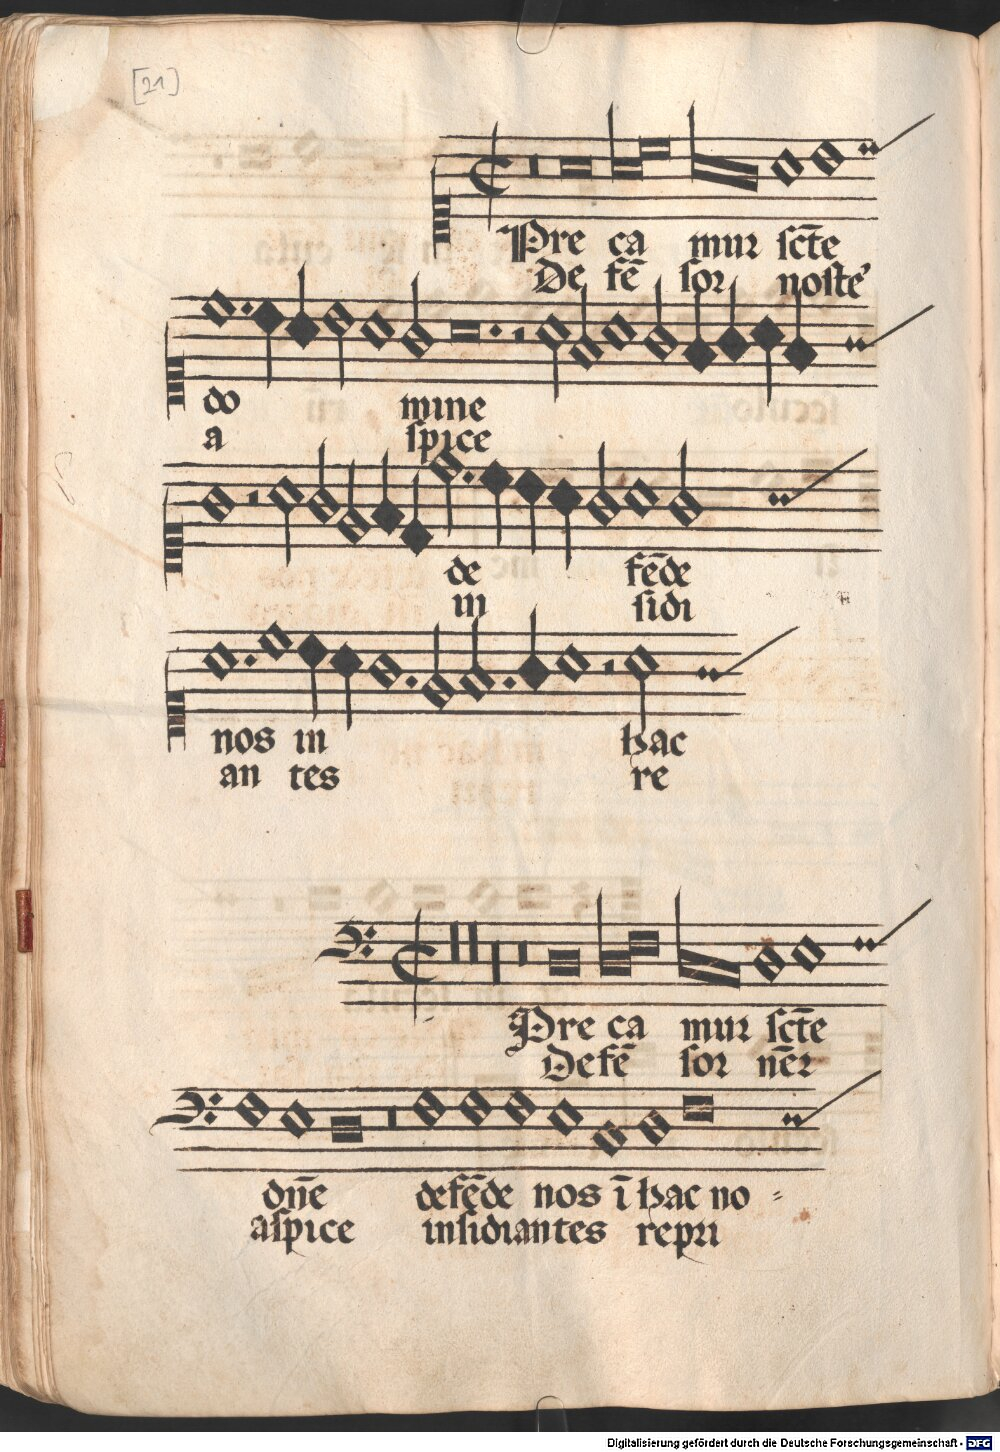 [21]
Pre ca mur sc̄te
De fē sor noste᾽
do mine
a spice
de fēde
in sidi
nos in hac
an tes re
Pre ca mur sc̄te
Defē sor nēr
dn̄e defēde nos ī hac no =
aspice insidiantes repri
Digitalisierung gefördert durch die Deutsche Forschungsgemeinschaft - DFG